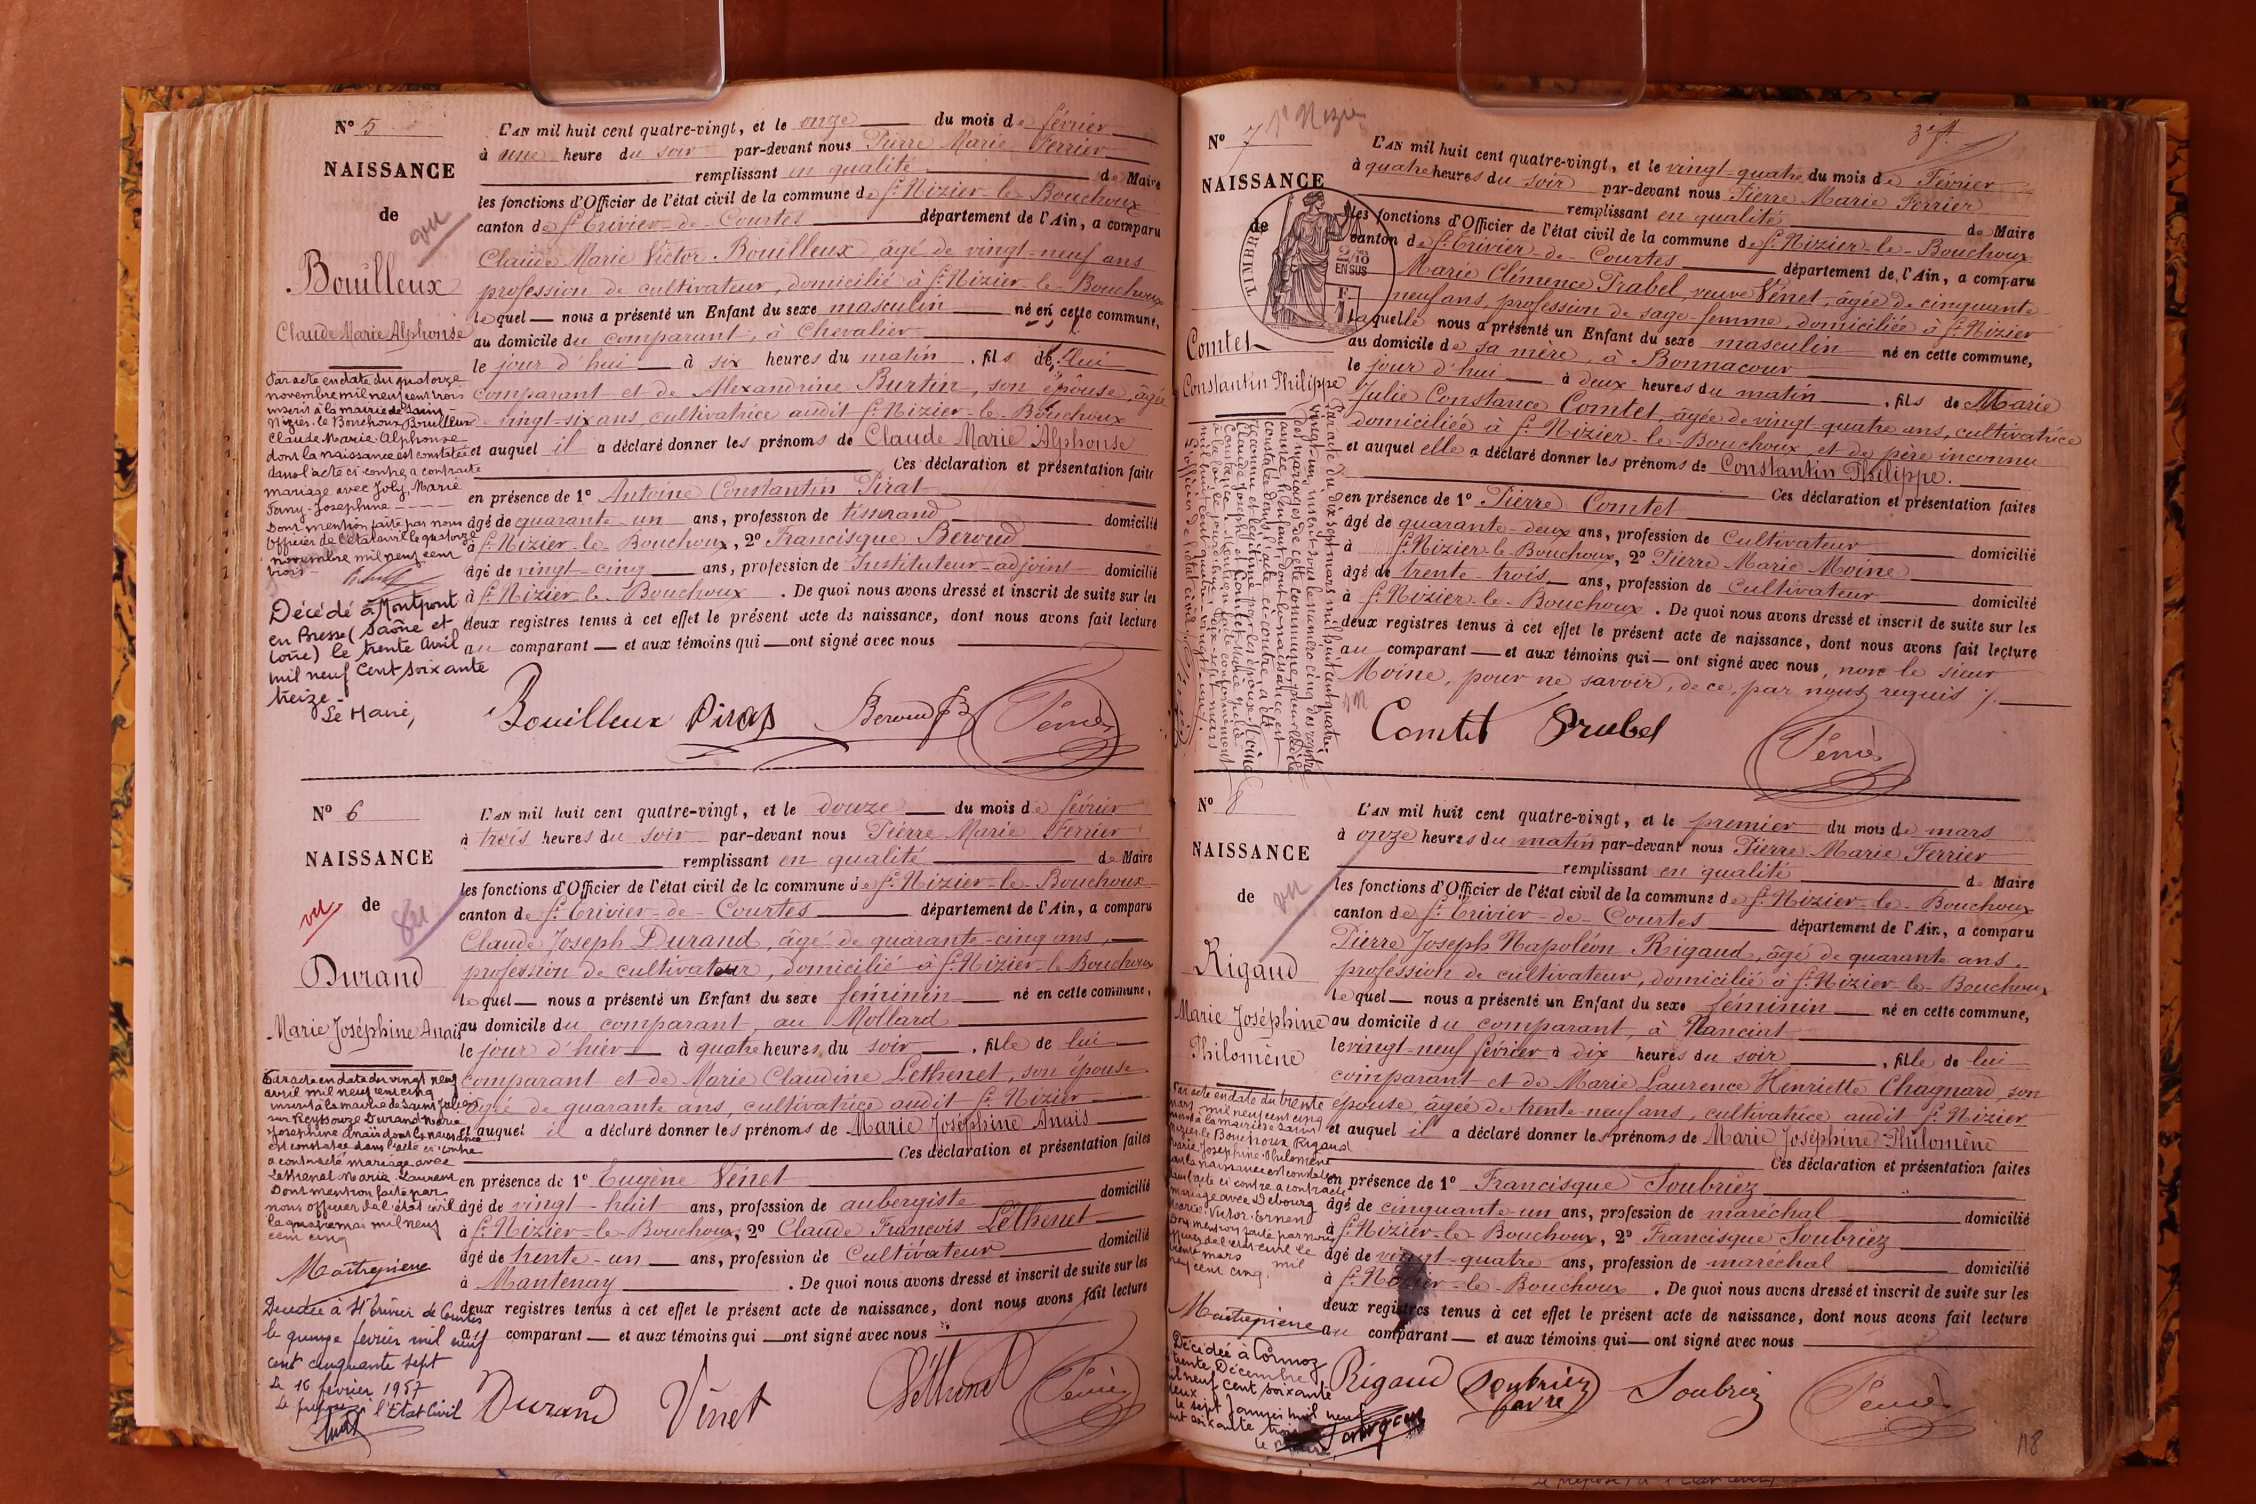 N° 5
NAISSANCE
de
vu
Bouilleux
Claude Marie Alphonse
Par acte en date du quatorze
novembre mil neuf cent trois
inscrit à la mairie de Saint-
Nizier-le-Bouchoux Bouilleux
Claude Marie-Alphonse
dont la naissance est constatée
dans l'acte ci-contre a contracté
mariage avec Joly, Marie
Fany-Josephine
Dont mention faite par nous
Officier de l'état civil le quatorze
novembre mil neuf cent
trois
Décédé à Montpont
en Bresse (Saône et
Loire) le trente Avril
mil neuf cent soixante
treize
Le Maire,
L'AN mil huit cent quatre-vingt, et le onze du mois de février
à une heure du soir par-devant nous Pierre Marie Ferrier
remplissant en qualité de Maire
les fonctions d'Officier de l'état civil de la commune de St Nizier-le-Bouchoux
canton de St Trivier-de-Courtes département de l'Ain, a comparu
Claude Marie Victor Bouilleux âgé de vingt-neuf ans
profession de cultivateur, domicilié à St Nizier-le-Bouchoux
lequel nous a présenté un Enfant du sexe masculin né en cette commune,
au domicile du comparant, à Chevalier
le jour d'hui à six heures du matin, fils de lui
comparant et de Alexandrine Burtin, son épouse, âgée
de vingt-six ans, cultivatrice audit St Nizier-le-Bouchoux
et auquel il a déclaré donner les prénoms de Claude Marie Alphonse
Ces déclaration et présentation faites
en présence de 1° Antoine Constantin Pirat
âgé de quarante-un ans, profession de tisserand domicilié
à St Nizier-le-Bouchoux, 2° Francisque Beroud
âgé de vingt-cinq ans, profession de Instituteur-adjoint domicilié
à St Nizier-le-Bouchoux. De quoi nous avons dressé et inscrit de suite sur les
deux registres tenus à cet effet le présent acte de naissance, dont nous avons fait lecture
au comparant et aux témoins qui ont signé avec nous
Bouilleux Pirat Beroud Ferrier
N° 6
NAISSANCE
de
vu
Durand
Marie Joséphine Anaïs
Par acte en date du vingt neuf
avril mil neuf cent cinq
inscrit à la mairie de Saint Julien
sur Reyssouze Durand Marie
Josephine Anaïs dont la naissance
est constatée dans l'acte ci-contre
a contracté mariage avec
Lethenet Marie Laurent
Dont mention faite par
nous officier de l'état civil
le quatre mai mil neuf
cent cinq
Maitrepierre
Décédée à St Trivier de Courtes
le quinze février mil neuf
cent cinquante sept
Le 16 février 1957
Le préposé à l'Etat Civil
L'AN mil huit cent quatre-vingt, et le douze du mois de février
à trois heures du soir par-devant nous Pierre Marie Ferrier
remplissant en qualité de Maire
les fonctions d'Officier de l'état civil de la commune de St Nizier-le-Bouchoux
canton de St Trivier-de-Courtes département de l'Ain, a comparu
Claude Joseph Durand, âgé de quarante-cinq ans,
profession de cultivateur, domicilié à St Nizier-le-Bouchoux
lequel nous a présenté un Enfant du sexe féminin né en cette commune,
au domicile du comparant, au Mollard
le jour d'hier à quatre heures du soir, fille de lui
comparant et de Marie Claudine Lethenet, son épouse
âgée de quarante ans, cultivatrice audit St Nizier
et auquel il a déclaré donner les prénoms de Marie Joséphine Anaïs
Ces déclaration et présentation faites
en présence de 1° Eugène Vénet
âgé de vingt-huit ans, profession de aubergiste domicilié
à St Nizier-le-Bouchoux, 2° Claude François Lethenet
âgé de trente-un ans, profession de Cultivateur domicilié
à Mantenay. De quoi nous avons dressé et inscrit de suite sur les
deux registres tenus à cet effet le présent acte de naissance, dont nous avons fait lecture
au comparant et aux témoins qui ont signé avec nous
Durand Vénet Lethenet Ferrier
N° 7 St Nizier
3e ft
NAISSANCE
de
TIMBRE
2/10
EN SUS
Comtet
Constantin Philippe
Par acte du dix sept mars mil huit cent quatre
vingt-un, inscrit sous le numéro cinq des registres
de mariages de cette commune pour ladite
année, l'enfant dont la naissance est
constatée dans l'acte ci-contre a été
reconnu et légitimé par les époux Moine
Claude Joseph et Comtet Marie Julie
Constance. Mention faite conformément
à la loi, le jourd'hui, dix-sept mars
mil huit cent quatre-vingt-un.
L'officier de l'état civil,
L'AN mil huit cent quatre-vingt, et le vingt-quatre du mois de Février
à quatre heures du soir par-devant nous Pierre Marie Ferrier
remplissant en qualité de Maire
les fonctions d'Officier de l'état civil de la commune de St Nizier-le-Bouchoux
canton de St Trivier-de-Courtes département de l'Ain, a comparu
Marie Clémence Prabel, veuve Vénet, âgée de cinquante
neuf ans, profession de sage-femme, domiciliée à St Nizier
laquelle nous a présenté un Enfant du sexe masculin né en cette commune,
au domicile de sa mère, à Bonnacour
le jour d'hui à deux heures du matin, fils de Marie
Julie Constance Comtet âgée de vingt-quatre ans, cultivatrice
domiciliée à St Nizier-le-Bouchoux et de père inconnu
et auquel elle a déclaré donner les prénoms de Constantin Philippe.
Ces déclaration et présentation faites
en présence de 1° Pierre Comtet
âgé de quarante-deux ans, profession de Cultivateur domicilié
à St Nizier-le-Bouchoux, 2° Pierre Marie Moine
âgé de trente-trois ans, profession de Cultivateur domicilié
à St Nizier-le-Bouchoux. De quoi nous avons dressé et inscrit de suite sur les
deux registres tenus à cet effet le présent acte de naissance, dont nous avons fait lecture
au comparant et aux témoins qui ont signé avec nous, non le sieur
Moine, pour ne savoir, de ce, par nous requis
Comtet Prabel Ferrier
N° 8
NAISSANCE
de
vu
Rigaud
Marie Joséphine
Philomène
Par acte en date du trente
mars mil neuf cent cinq
inscrit à la mairie de Saint
Nizier le Bouchoux Rigaud
Marie Josephine Philomène
dont la naissance est constatée
dans l'acte ci contre a contracté
mariage avec Debourg
Marie Victor Ernest
Dont mention faite par nous
officier de l'état civil le
trente mars mil
neuf cent cinq.
Maitrepierre
Décédée à Cormoz
trente Décembre
mil neuf cent soixante
deux
le sept Janvier mil neuf
cent soixante trois
Le Maire
L'AN mil huit cent quatre-vingt, et le premier du mois de mars
à onze heures du matin par-devant nous Pierre Marie Ferrier
remplissant en qualité de Maire
les fonctions d'Officier de l'état civil de la commune de St Nizier-le-Bouchoux
canton de St Trivier-de-Courtes département de l'Ain, a comparu
Pierre Joseph Napoléon Rigaud, âgé de quarante ans,
profession de cultivateur, domicilié à St Nizier-le-Bouchoux
lequel nous a présenté un Enfant du sexe féminin né en cette commune,
au domicile du comparant, à Nanciat
le vingt-neuf février à dix heures du soir, fille de lui
comparant et de Marie Laurence Henriette Chagnard, son
épouse, âgée de trente-neuf ans, cultivatrice audit St Nizier
et auquel il a déclaré donner les prénoms de Marie Joséphine Philomène
Ces déclaration et présentation faites
en présence de 1° Francisque Soubriez
âgé de cinquante-un ans, profession de maréchal domicilié
à St Nizier-le-Bouchoux, 2° Francisque Soubriez
âgé de vingt-quatre ans, profession de maréchal domicilié
à St Nizier-le-Bouchoux. De quoi nous avons dressé et inscrit de suite sur les
deux registres tenus à cet effet le présent acte de naissance, dont nous avons fait lecture
au comparant et aux témoins qui ont signé avec nous
Rigaud Soubriez favre Soubriez Ferrier
118